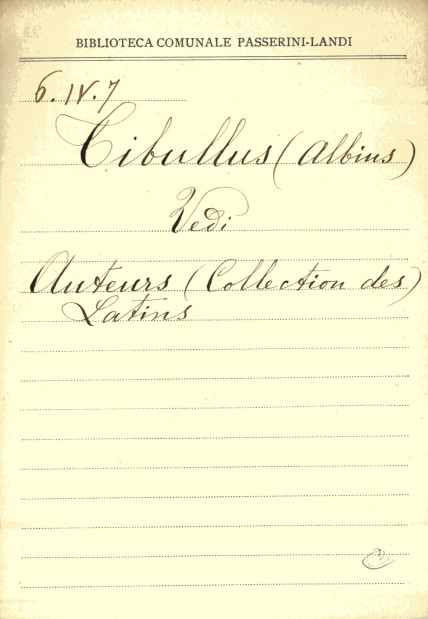 BIBLIOTECA COMUNALE PASSERINI-LANDI
6.IV.7
Tibullus (Albius)
Vedi
Auteurs (Collection des)
Latins